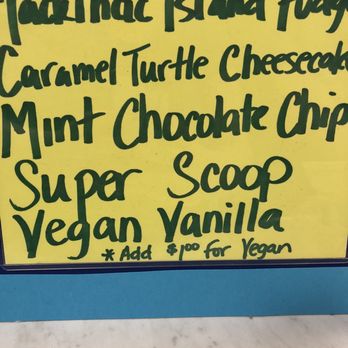 Mackinac Island Fudge
Caramel Turtle Cheesecake
Mint Chocolate Chip
Super Scoop
Vegan Vanilla
* Add $1.00 for Vegan